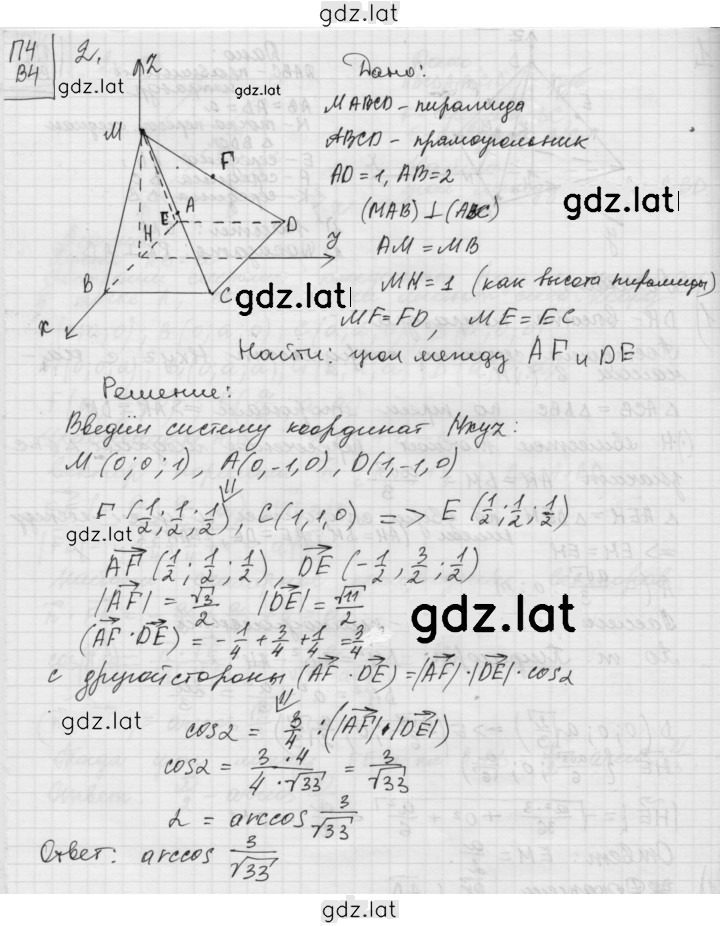 gdz.lat
П4
В4
2.
Z
gdz.lat
M
F
E
A
D
H
y
B
C
x
gdz.lat
Дано:
MABCD – пирамида
ABCD – прямоугольник
AD = 1, AB = 2
gdz.lat
(MAB) ⊥ (ABC)
AM = MB
MH = 1 (как высота пирамиды)
MF = FD, ME = EC
Найти: угол между AF и DE
Решение:
Введём систему координат Hxyz:
M (0; 0; 1), A(0, -1, 0), D(1, -1, 0)
⇓
F (1/2; 1/2; 1/2), C(1, 1, 0) => E (1/2; 1/2; 1/2)
gdz.lat
AF→ (1/2; 1/2; 1/2), DE→ (-1/2, 3/2; 1/2)
|AF→| = √3/2 |DE→| = √11/2
gdz.lat
(AF→ · DE→) = -1/4 + 3/4 + 1/4 = 3/4
с другой стороны (AF→ · DE→) = |AF→| · |DE→| · cosα
⇓
gdz.lat
cosα = 3/4 : (|AF→| · |DE→|)
cosα = 3 · 4/4 · √33 = 3/√33
α = arccos 3/√33
Ответ: arccos 3/√33
gdz.lat